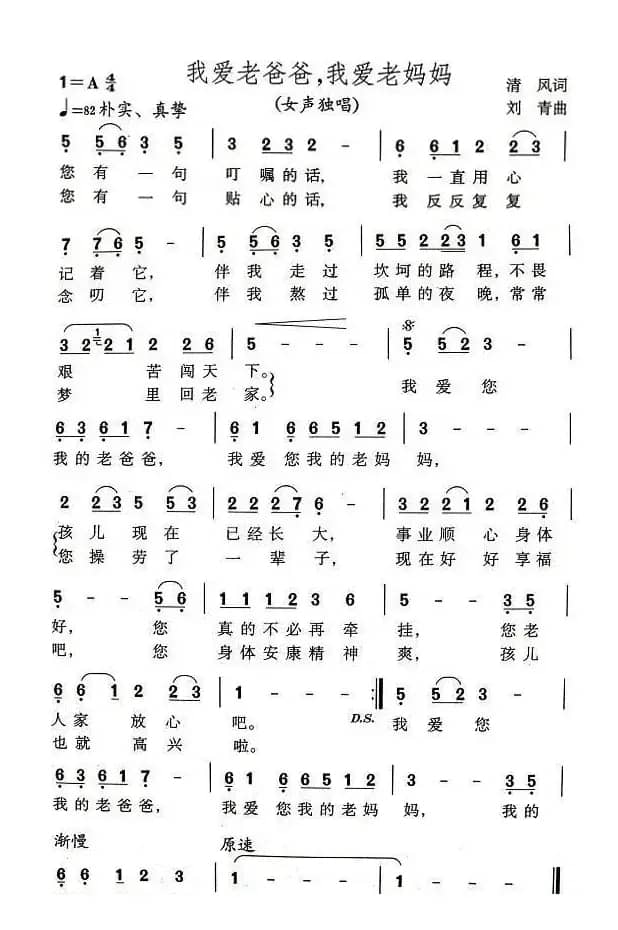 我爱老爸爸,我爱老妈妈
1=A 4/4
清 风词
♩=82 朴实、真挚
(女声独唱)
刘 青曲
5 5 6 3 5 | 3 2 3 2 - | 6 6 1 2 2 3 |
您 有 一 句 叮 嘱 的 话, 我 一 直 用 心
您 有 一 句 贴 心 的 话, 我 反 反 复 复
7 7 6 5 - | 5 5 6 3 5 | 5 5 2 2 2 3 6 1 |
记 着 它, 伴 我 走 过 坎 坷 的 路 程, 不 畏
念 叨 它, 伴 我 熬 过 孤 单 的 夜 晚, 常 常
3 2 1 2 1 2 2 6 | 5 - - - | 5 5 2 3 - |
艰 苦 闯 天 下。 我 爱 您
梦 里 回 老 家。
6 3 6 1 7 - | 6 1 6 6 5 1 2 | 3 - - - |
我 的 老 爸 爸, 我 爱 您 我 的 老 妈 妈,
2 2 3 5 5 3 | 2 2 2 7 6 - | 3 2 2 1 2 2 6 |
孩 儿 现 在 已 经 长 大, 事 业 顺 心 身 体
您 操 劳 了 一 辈 子, 现 在 好 好 享 福
5 - - 5 6 | 1 1 1 2 3 6 | 5 - - 3 5 |
好, 您 真 的 不 必 再 牵 挂, 您 老
吧, 您 身 体 安 康 精 神 爽, 孩 儿
6 6 1 2 2 3 | 1 - - - :| 5 5 2 3 - |
人 家 放 心 吧。 D.S. 我 爱 您
也 就 高 兴 啦。
6 3 6 1 7 - | 6 1 6 6 5 1 2 | 3 - - 3 5 |
我 的 老 爸 爸, 我 爱 您 我 的 老 妈 妈, 我 的
渐慢 原速